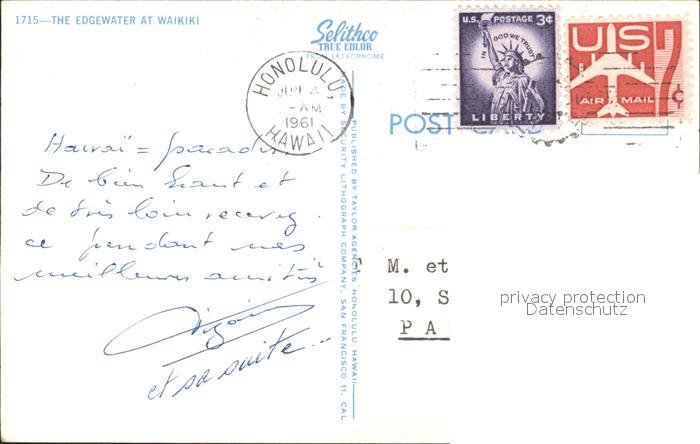 1715—THE EDGEWATER AT WAIKIKI
Selithco
TRUE COLOR
FROM EKTACHROME
HONOLULU,
JUN 4
-AM
1961
HAWAII
U.S. POSTAGE 3¢
IN GOD WE TRUST
LIBERTY
US
AIR MAIL
7¢
POST CARD
Hawaï = paradis.
De bien haut et
de très loin recevez
ce pendant mes
meilleures amitiés
et sa suite...
PUBLISHED BY TAYLOR AGENCIES, HONOLULU, HAWAII
MADE BY SECURITY LITHOGRAPH COMPANY, SAN FRANCISCO 11, CAL
M. et
10, S
PA
privacy protection
Datenschutz